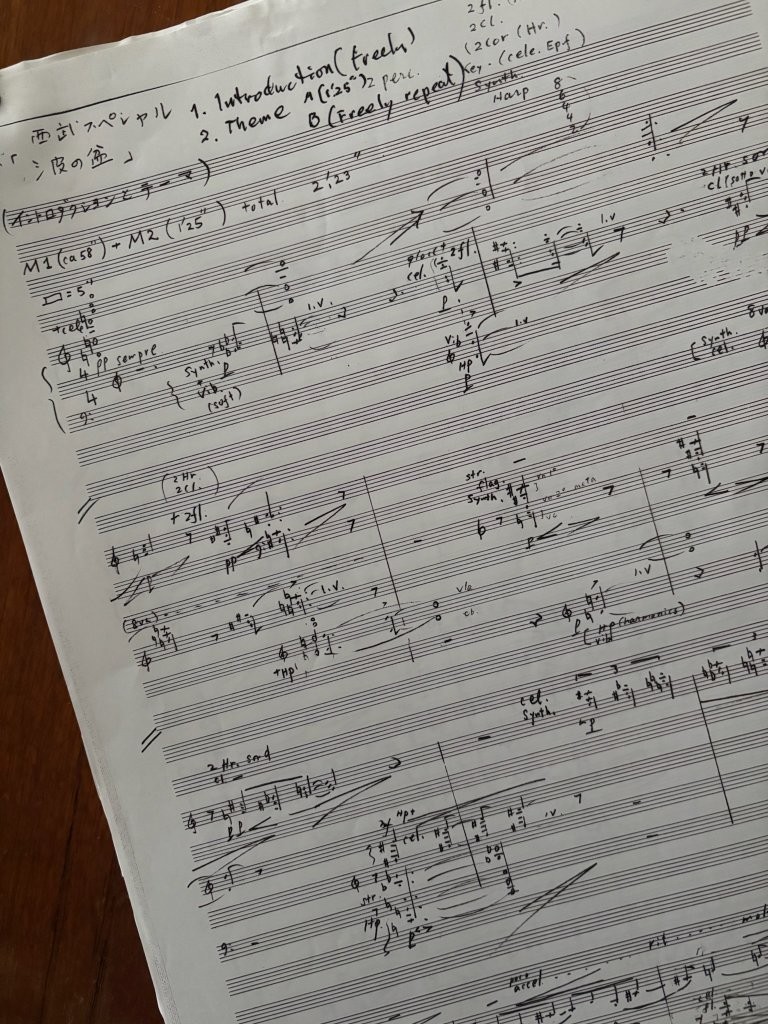 2 fl.
2 cl.
(2 cor (Hr.)
Key. (cele. Epf)
Synth.
Harp
8
6
4
4
2
1. Introduction (freely)
2. Theme A (1'25") 2 perc.
B (Freely repeat)
西武スペシャル
「波の盆」
(イントロダクションとテーマ)
M1 (ca 58") + M2 (1'25") total 2'23"
= 5"
+cele
4
4
pp sempre
Synth.
+
vib
(soft)
p
l.v.
cel.
2 fl.
p
l.v.
vib
Hp
p
l.v.
2 Hr. sord
cl (sotto v
pp
(Synth.
cel.
8va
(2 Hr.
2 cl.)
+ 2 fl.
pp
str.
flag.
Synth.
p
(8va)
l.v.
+Hp
vla
cb.
l.v.
p
Hp (harmonics)
vib
cel.
Synth.
3
3
mp
2 Hr. sord
cl
pp
Hp+
cel.
l.v.
str.
Hp.
p
poco
accel.
rit.
molto